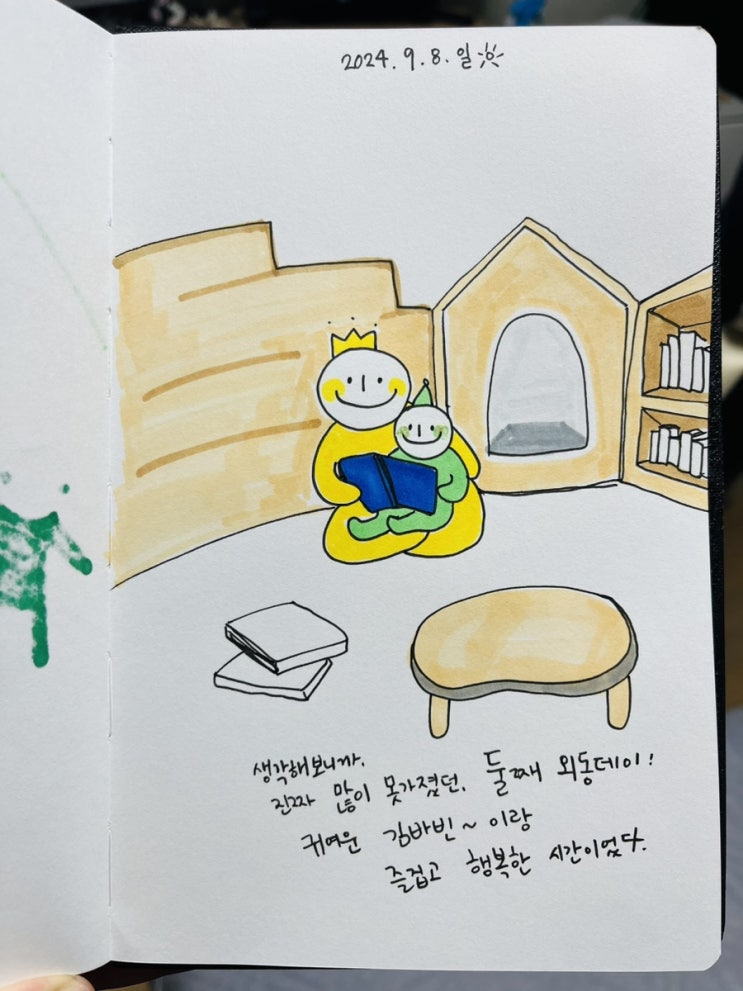 2024. 9. 8. 일
생각해보니까.
진짜 많이 못가졌던. 둘째 외동데이!
귀여운 김바빈~ 이랑
즐겁고 행복한 시간이었다.